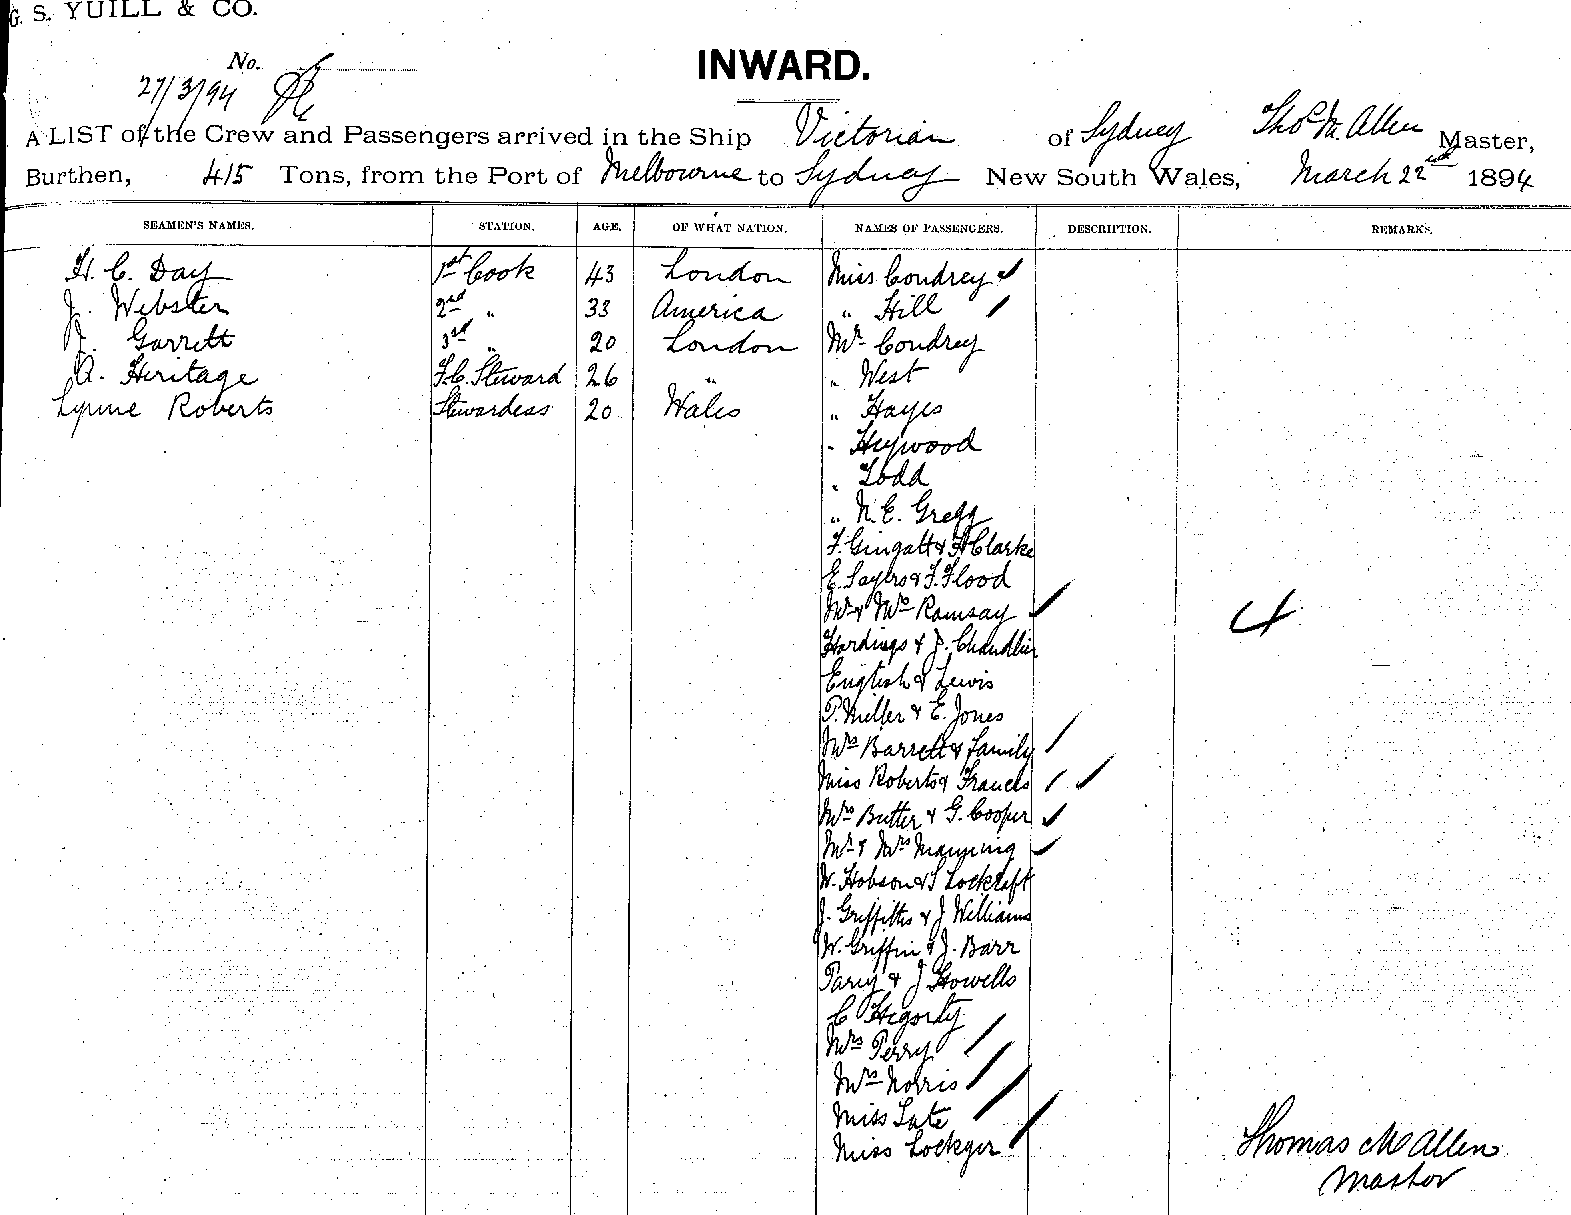 G. S. YUILL & CO.
INWARD.
No.
27/3/94
A LIST of the Crew and Passengers arrived in the Ship Victorian of Sydney Thos M. Allen Master,
Burthen, 415 Tons, from the Port of Melbourne to Sydney New South Wales, March 22nd 1894
SEAMEN'S NAMES. STATION. AGE. OF WHAT NATION. NAMES OF PASSENGERS. DESCRIPTION. REMARKS.
H. C. Day 1st Cook 43 London Miss Coudrey
J. Webster 2nd " 33 America " Hill
Garrett 3rd " 20 London Mr Coudrey
A. Heritage F.C. Steward 26 " " West
Lynne Roberts Stewardess 20 Wales " Hayes
" Heywood
" Todd
" N. E. Gregg
F. Gingatt & H Clarke
E. Sayers & F. Flood
Mr & Mrs Ramsay
Hardings & J. Chandler
English & Lewis
P. Miller & E. Jones
Mrs Barrett & family
Miss Roberts & Francis
Mrs Butter & G. Cooper
Mr & Mrs Manning
W. Hobson & Lockleft
J. Griffiths & J Williams
W. Griffin & J. Barr
Parry & J Howells
C Hegorty
Mrs Perry
Mrs Norris
Miss Tate
Miss Lockyer
4
Thomas M Allen
Master